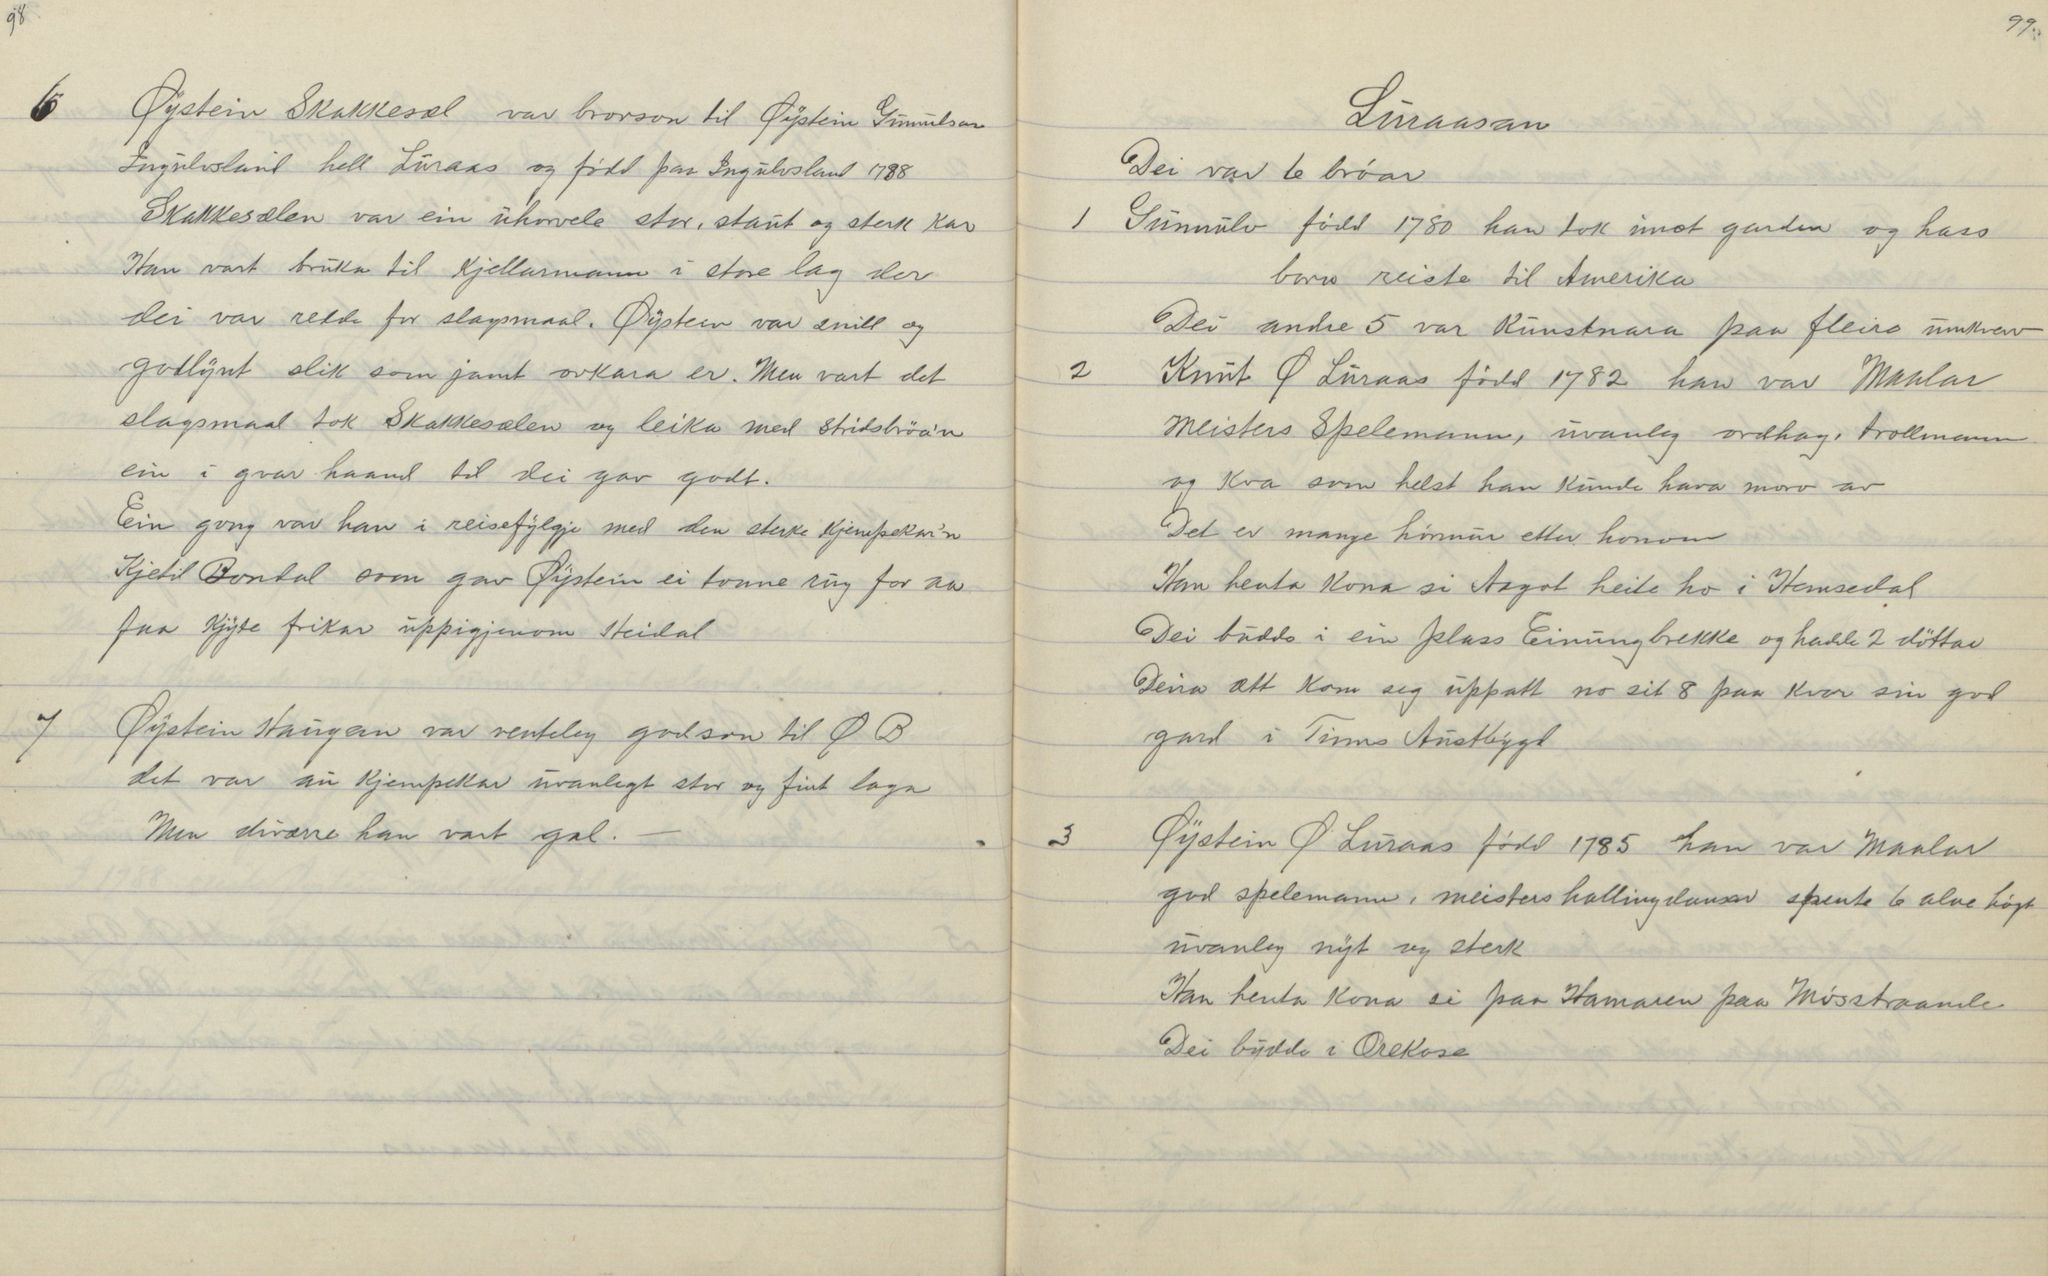 98
6 Øystein Skakkesæl var brorson til Øystein Gunnulson
Ingulvsland hell Luraas og født paa Ingulvsland 1788
Skakkesælen var ein uhorvele stor, staut og sterk kar
Han vart bruka til Kjellarmann i store lag der
dei var redde for slagsmaal. Øystein var snill og
godlynt slik som jamt ovkara er. Men vart det
slagsmaal tok Skakkesælen og leika med Stridsbröa'n
ein i qvar haand til dei gav godt.
Ein gong var han i reisefylgje med den sterke Kjempekar'n
Kjetil Bondal som gav Øystein ei tonne rug for aa
faa Kjyte frikar uppigjenom Heidal
7 Øystein Haugan var venteleg godson til Ø B
det var au Kjempekar uvanlegt stor og fint laga
Men diværre han vart gal. —
99.
Luraasan
Dei var 6 bröar
1 Gunnulv född 1780 han tok imot garden og hass
born reiste til Amerika
Dei andre 5 var Kunstnara paa fleire umkverv
2 Knut Ø Luraas född 1782 han var Maalar
Meisters Spelemann, uvanleg ordhag, trollmann
og Kva som helst han Kunde hava moro av
Det er mange hörmur etter honom
Han henta Kona si Aagot heite ho i Hemsedal
Dei budde i ein plass Einungbrekke og hadde 2 döttar
Deira ætt kom seg uppatt no sit 8 paa kvar sin god
gard i Tinns Austbygd
3 Øystein Ø Luraas född 1785 han var Maalar
god spelemann, meisters hallingdansar spente 6 alne högt
uvanleg nyt og sterk
Han henta Kona si paa Hamaren paa Mösstraande
Dei budde i Orekåsa